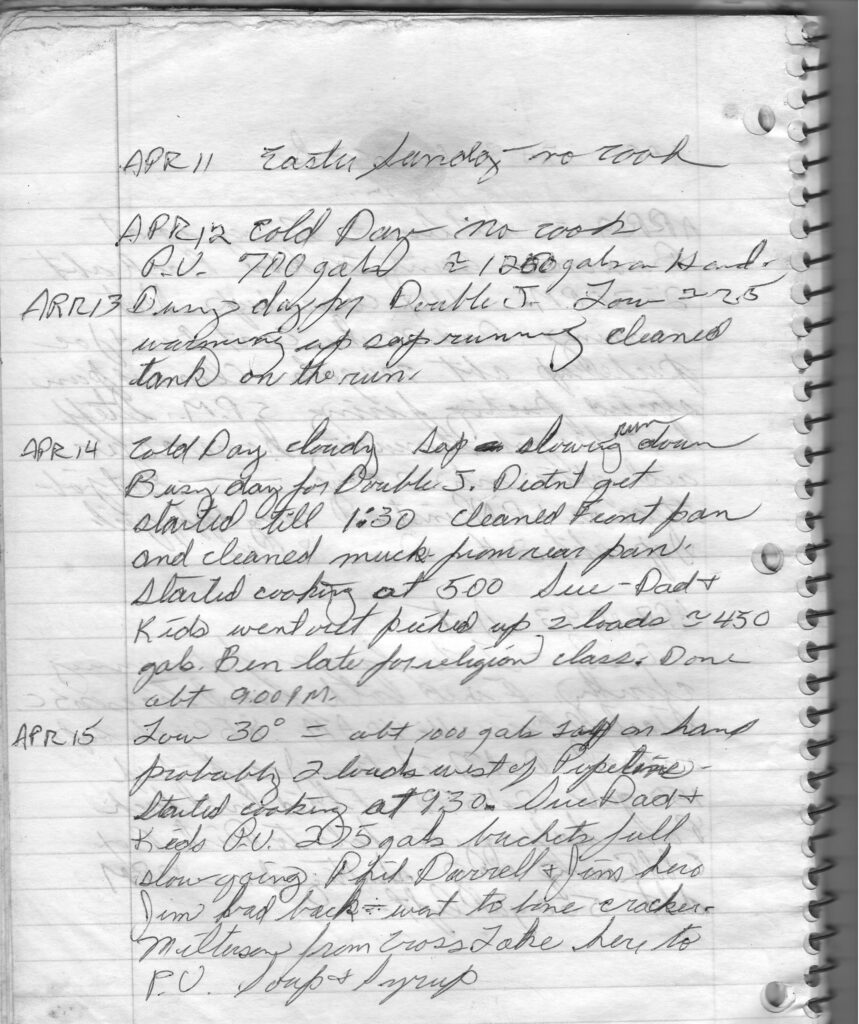 APR 11 Easter Sunday - no cook
APR 12 Cold Day no cook
P.U. 700 gals ≈ 1250 gals on Hand.
APR 13 Busy day for Double J. Low ≈ 25
warming up sap running cleaned
tank on the run.
APR 14 Cold Day cloudy Sap slowing run down
Busy day for Double J. Didnt get
started till 1:30 cleaned Front pan
and cleaned muck from rear pan.
Started cooking at 500 Sue - Dad +
Kids went out picked up 2 loads ≈ 450
gals. Ben late for religion class. Done
abt 900 PM.
APR 15 Low 30° = abt 1000 gals sap on hand
probably 2 loads west of Pipeline -
Started cooking at 930. Sue Dad +
Kids P.U. 275 gals buckets full
slow going. Phil Darrell + Jims here
Jim bad back - went to bone cracker.
from Lake here to
P.U. Soap + Syrup